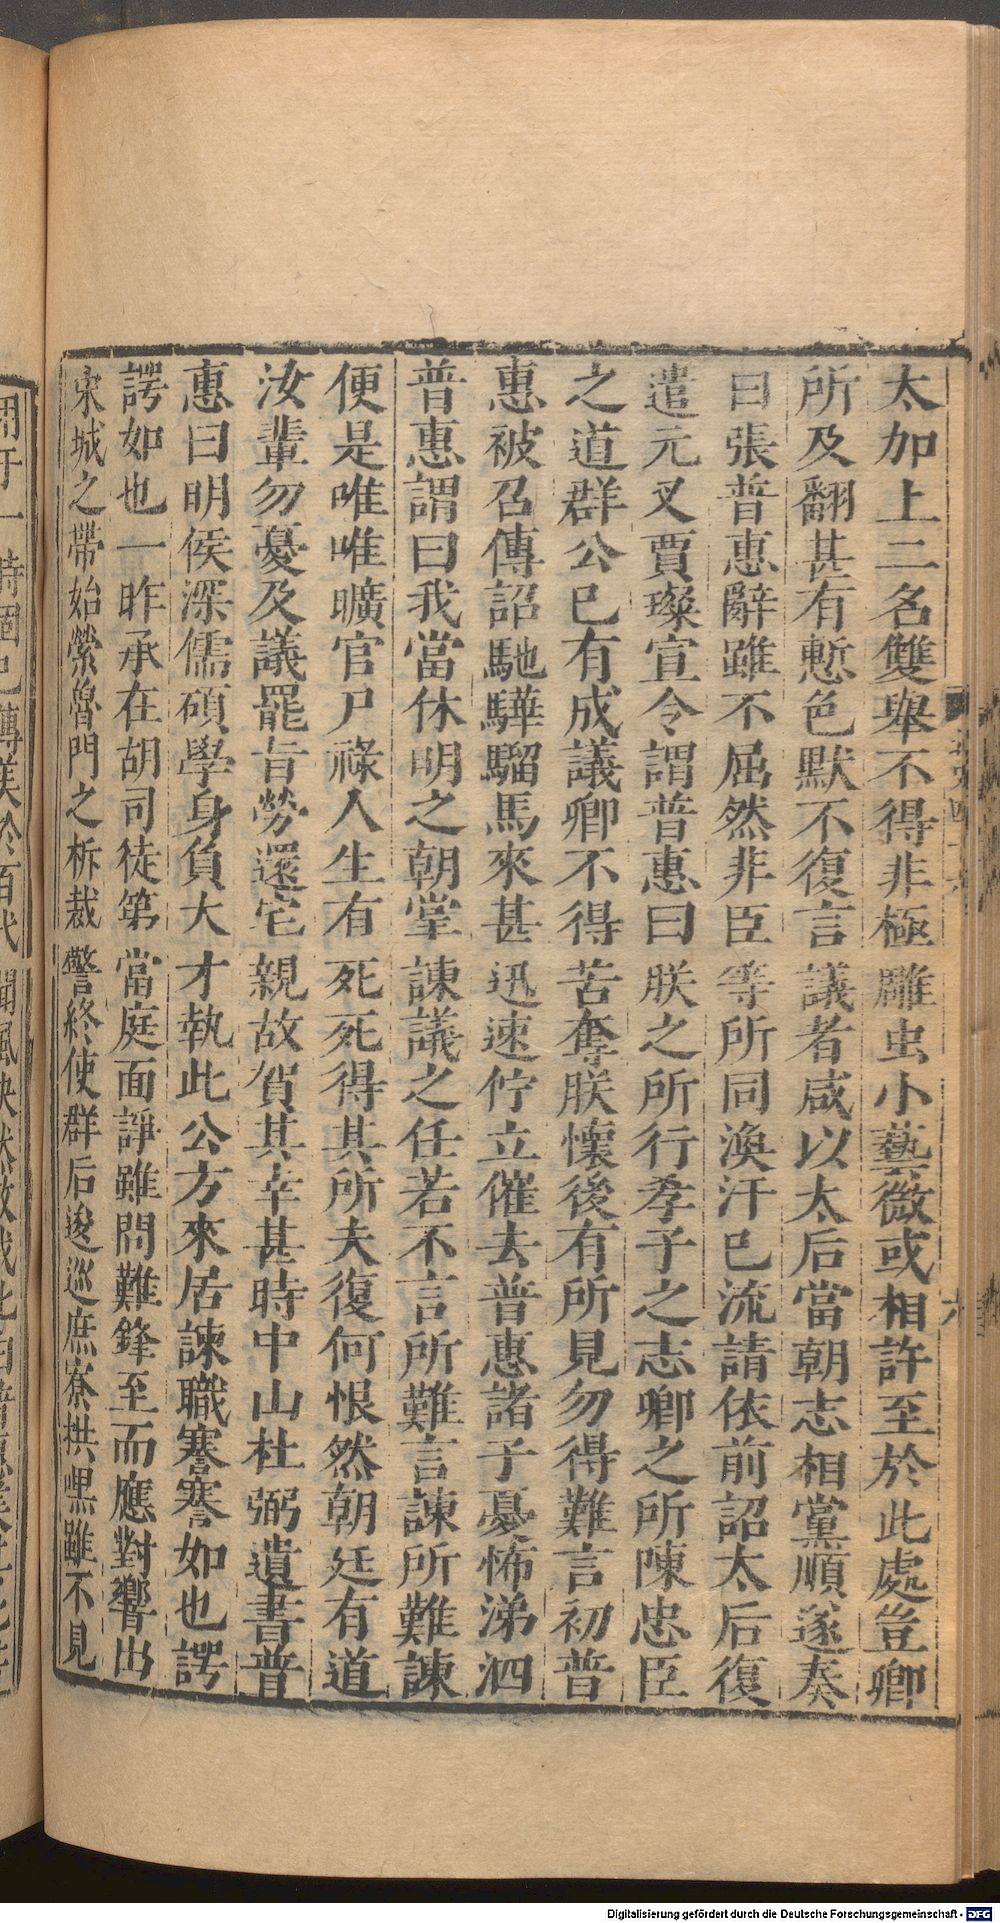 太加上二名雙舉不得非極雕虫小藝微或相許至於此處豈卿
所及翻甚有慙色默不復言議者咸以太后當朝志相黨順遂奏
曰張普惠辭雖不屈然非臣等所同渙汗已流請依前詔太后復
遣元叉賈璨宣令謂普惠曰朕之所行孝子之志卿之所陳忠臣
之道群公已有成議卿不得苦奪朕懷後有所見勿得難言初普
惠被召傳詔馳驊騮馬來甚迅速佇立催去普惠諸子憂怖涕泗
普惠謂曰我當休明之朝掌諫議之任若不言所難言諫所難諫
便是唯唯曠官尸祿人生有死死得其所夫復何恨然朝廷有道
汝輩勿憂及議罷旨勞還宅親故賀其幸甚時中山杜弼遺書普
惠曰明侯深儒碩學身負大才執此公方來居諫職謇謇如也諤
諤如也一昨承在胡司徒第當庭面諍雖問難鋒至而應對響出
宋城之帶始縈魯門之柝裁警終使群后逡巡庶寮拱嘿雖不見
六
Digitalisierung gefördert durch die Deutsche Forschungsgemeinschaft - DFG